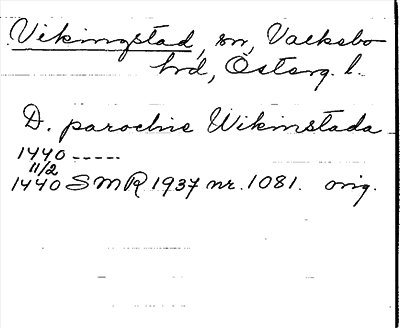 Vikingstad, sn, Valkebo
hrd, Österg. l.
D. parochie Wikinstada
1440 -----
11/2
1440 SMR 1937 nr. 1081. orig.